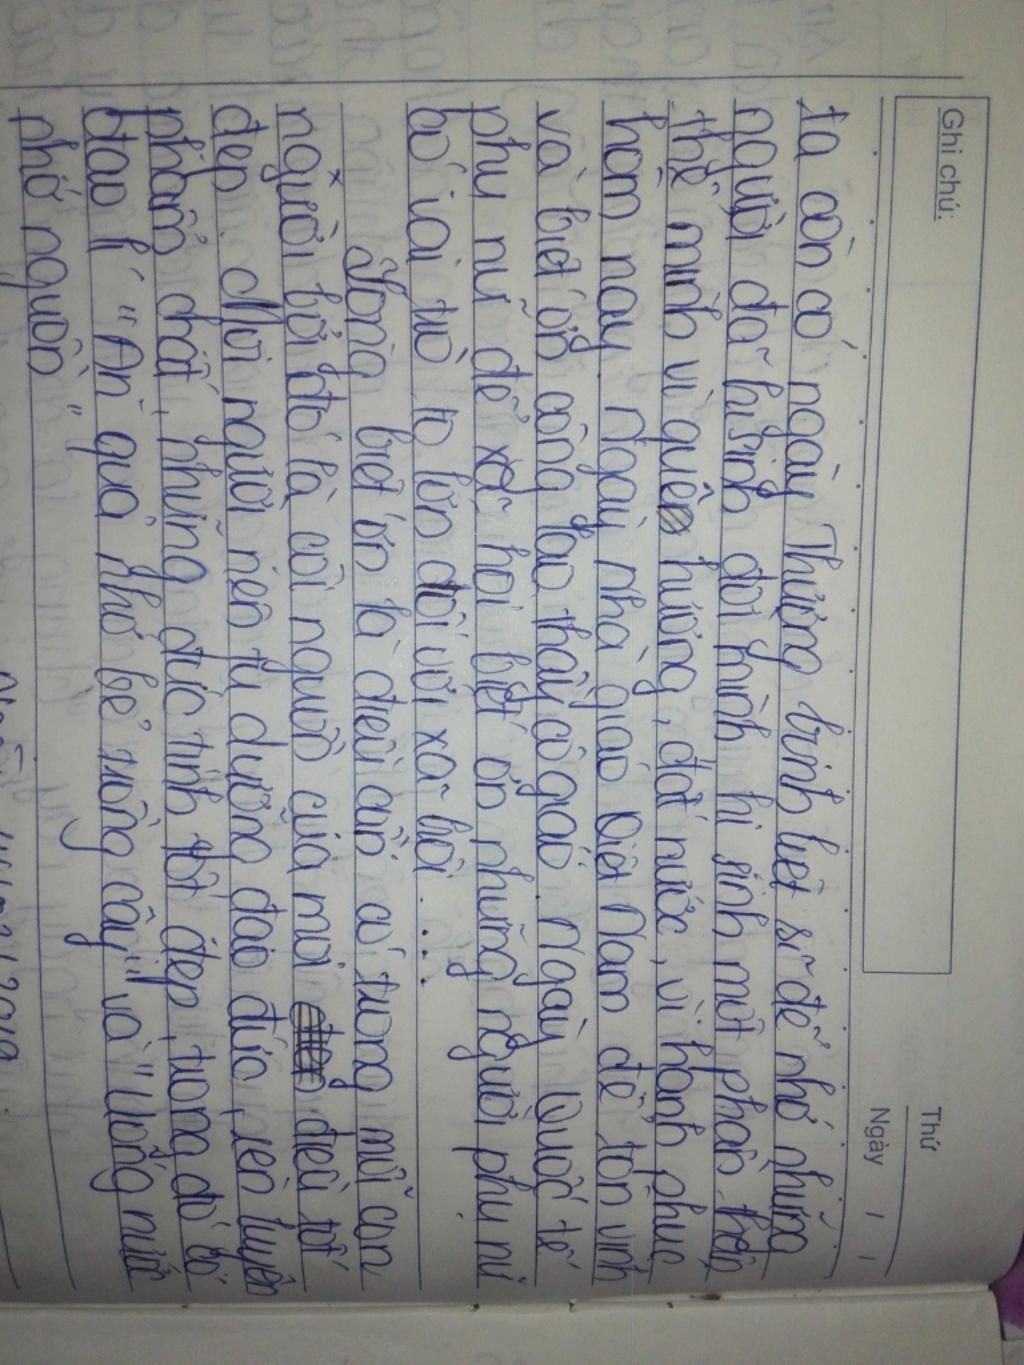 Ghi chú:
Thứ
Ngày / /
ta còn có ngày Thương binh liệt sĩ để nhớ những
người đã hi sinh đời mình hi sinh một phần thân
thể mình vì quê hương, đất nước, vì hạnh phúc
hôm nay. Ngày nhà giáo Việt Nam để tôn vinh
và biết ơn công lao thầy cô giáo. Ngày Quốc tế
phụ nữ để xã hội biết ơn những người phụ nữ
có vai trò to lớn đối với xã hội ....
Lòng biết ơn là điều cần có trong mỗi con
người bởi đó là cội nguồn của mọi điều tốt
đẹp. Mỗi người nên tu dưỡng đạo đức, rèn luyện
phẩm chất, những đức tính tốt đẹp, trong đó có
đạo lí "Ăn quả nhớ kẻ trồng cây" và "Uống nước
nhớ nguồn"